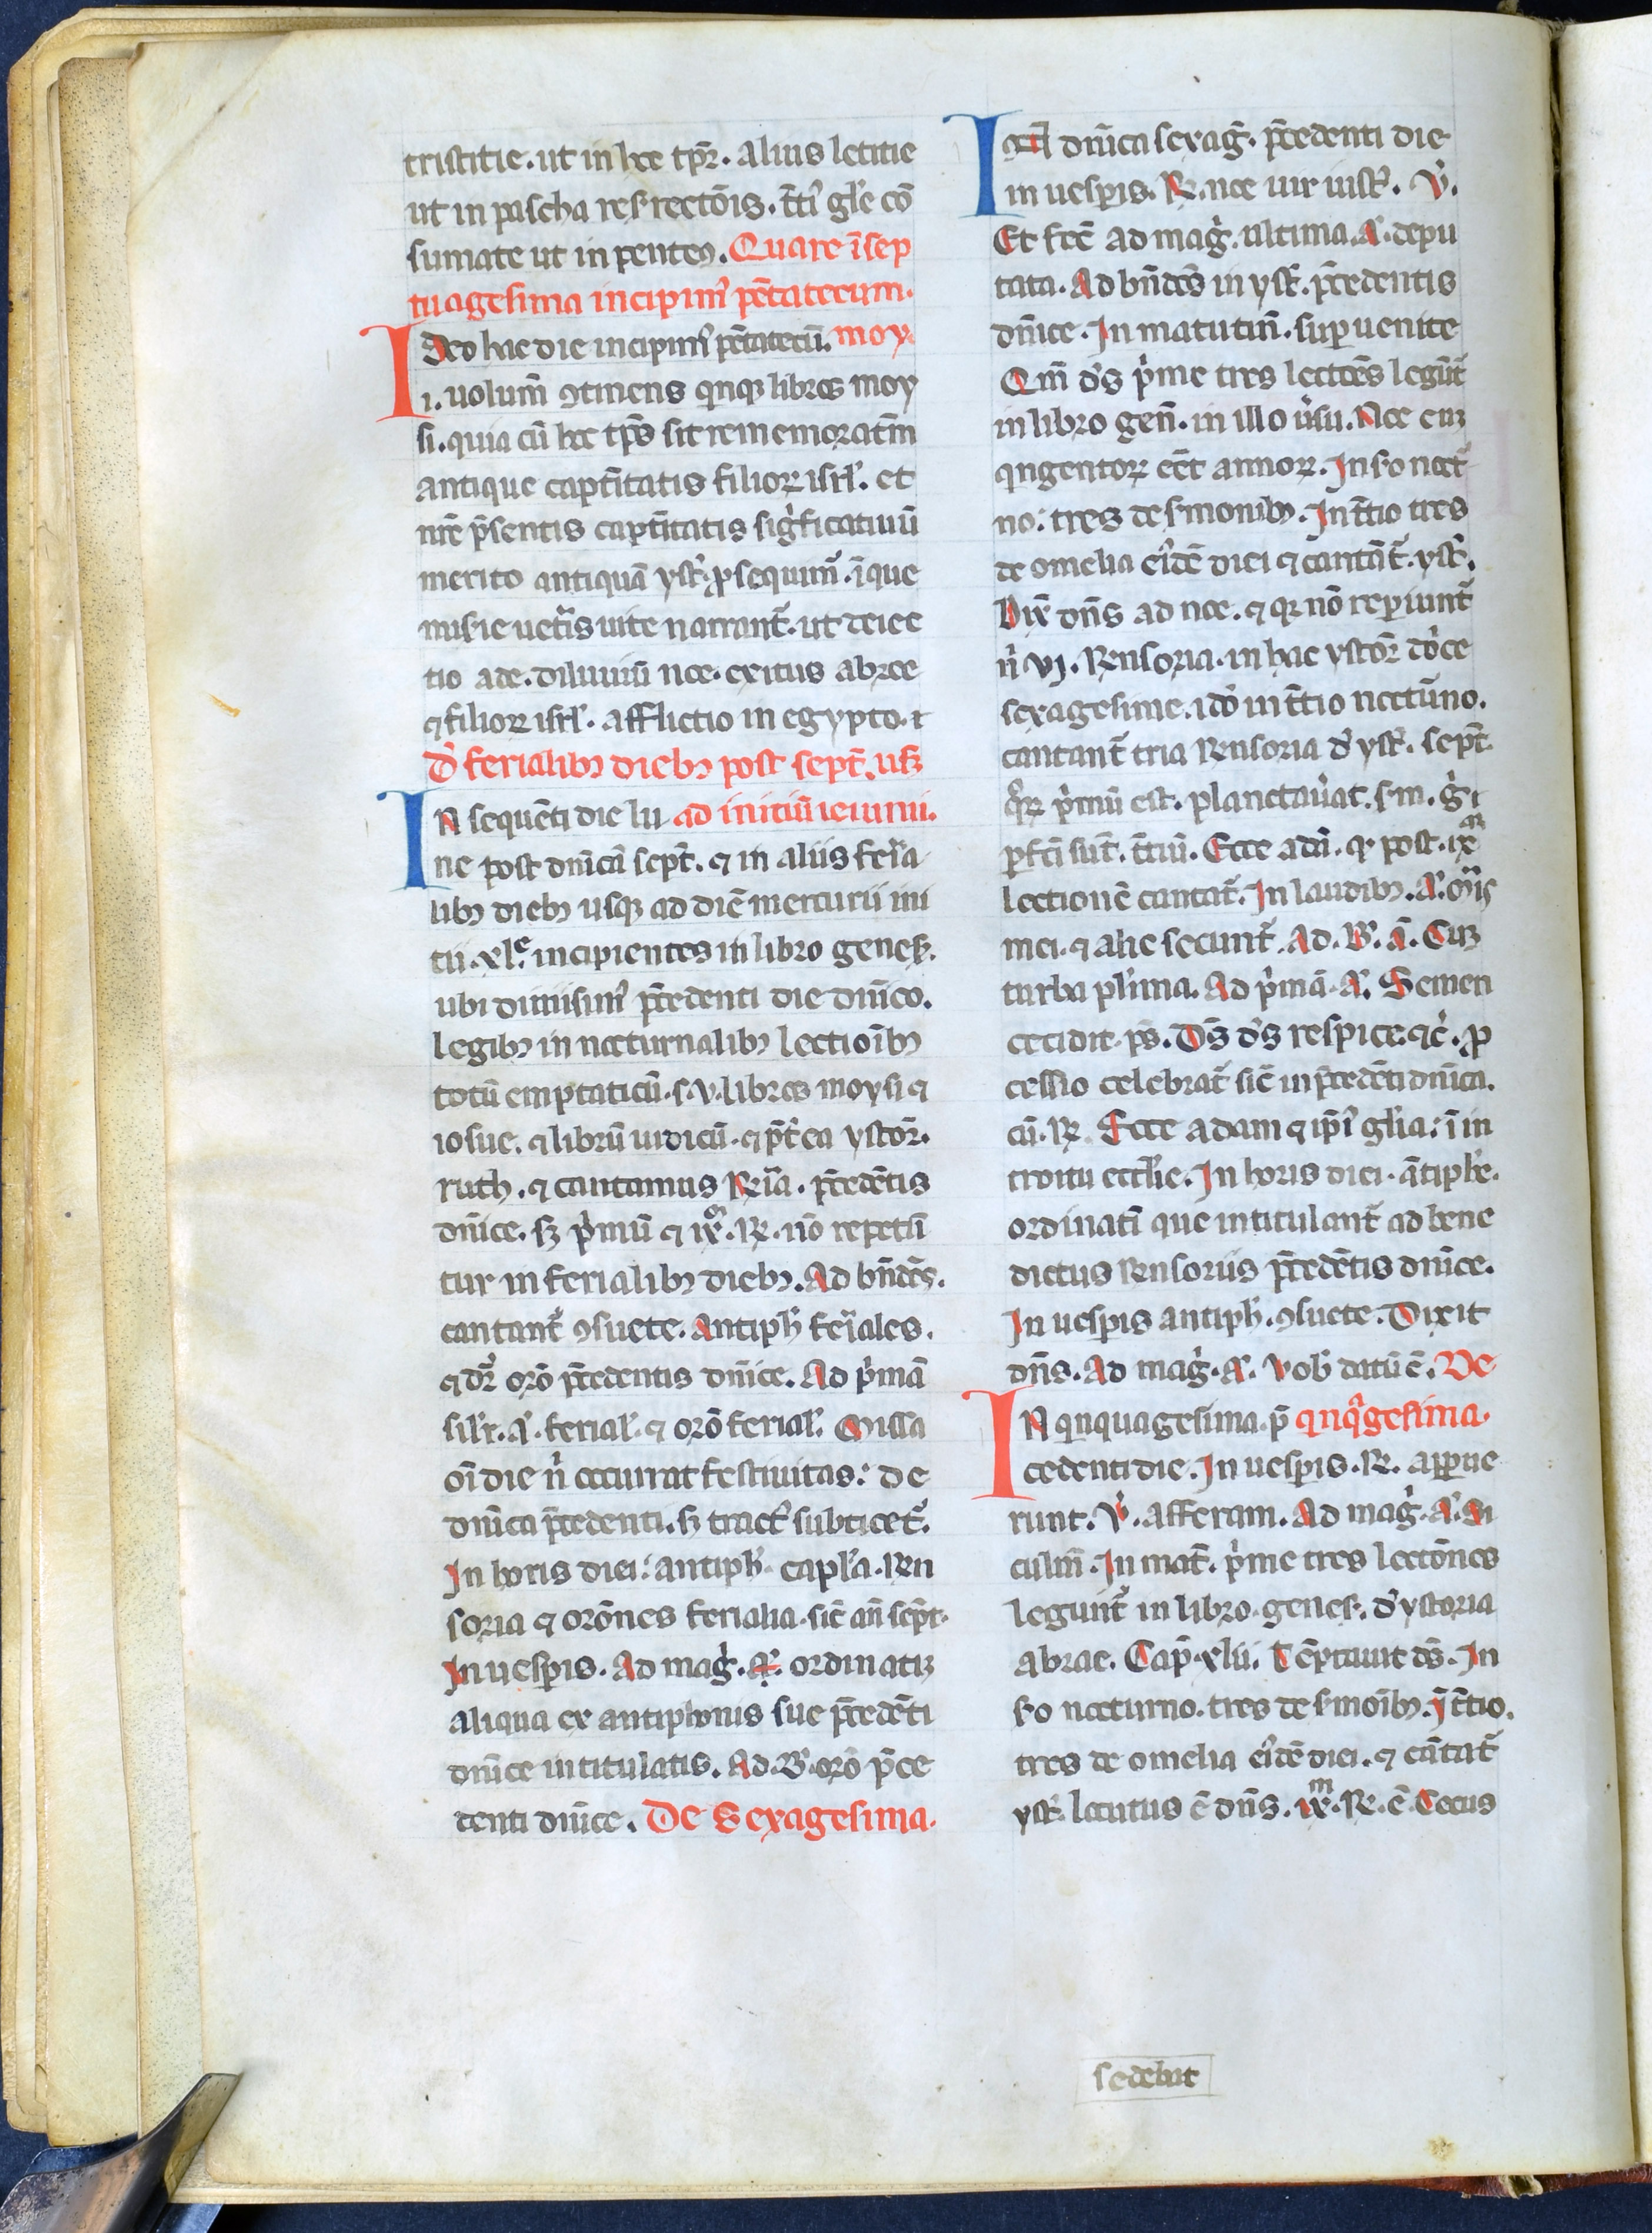 tristitie. ut in hoc tp̄r. Alius letitie
ut in pascha resrectōis. t̄ti' gl'e cō
sumate ut in penteꝯ. Quare ī sep
tuagesima incipim' pētatecum.
Ideo hac die incipim' pētatecū. moy
i. uolum̄ ꝯtinens qnqꝫ libros moy
si. quia cū hoc tp̄s sit rememoratm̄
antique captiuitatis filioꝝ isrl'. et
nr̄e p̄sentis captiuitatis sigficatiuū
merito antiquā yst'. ꝓsequim̄. ī que
miserie uet̄is uite narrant̄. ut deiec
tio ade. diluuiū noe. exitus abree
⁊ filioꝝ isrl'. afflictio in egypto. ⁊
d' ferialibꝫ diebꝫ post sept̄. usqꝫ
IN sequēti die lu ad initiū ieiunii.
ne post dnīcā sept̄. ⁊ in aliis feria
libꝫ diebꝫ usqꝫ ad diē mercurii ini
tii .xl.e incipientes in libro genes̄.
ubi dimisim' p̄cedenti die dnīco.
legibꝫ in nocturnalibꝫ lectioībꝫ
totū emptaticū. s. v. libros moysi ⁊
iosue. ⁊ librū iudicū. ⁊ p̄t'ea ystor̄.
ruth. ⁊ cantamus Rr̄ia. p̄cedētis
dnīce. sꝫ p'mū ⁊ ix.m R. nō repetū
tur in ferialibꝫ diebꝫ. Ad bn̄dc̄s.
cantant̄ ꝯsuete. Antiph' feriales.
⁊ dr̄ orō p̄cedentis dnīce. Ad p'mā
silr̄. A'. ferial'. ⁊ orō ferial'. Missa
oī die n' occurrat festiuitas: de
dnīca p̄cedenti. sꝫ tract' subticet̄.
In horis diei: antiph'. capl'a. Ren
soria ⁊ orōnes ferialia. sic̄ an̄ sept̄.
In uesperis. Ad mag'. A'. ordinatiꝫ
aliqua ex antiphonis sue p̄cedēti
dnīce intitulatis. Ad. B'. orō p̄ce
denti dnīce. De Sexagesima.
In dnīca sexag'. p̄cedenti die
in uesperis. R. noe uir iust'. V'.
Et fec̄ ad mag'. ultima. A'. depu
tata. Ad bn̄dc̄s in yst'. p̄cedentis
dnīce. In matutin̄. super uenite
Qm̄ d's p'me tres lectōēs legūt̄
in libro gen̄. in illo u'su. Noe cuꝫ
qngentoꝝ eēt annoꝝ. In s'o noct'
no: tres de s'monibꝫ. In t̄tio tres
de omelia ei'dē diei ⁊ cantāt̄. yst'.
Dix̄ dn̄s ad noe. ⁊ qr nō reperiunt̄
n' vj. Rensoria. in hac ystor̄ do'ce
sexagesime. ido' in t̄tio noctu'no.
cantant̄ tria Rensoria d' yst'. sept̄.
q'ꝝ p'mū est. planctau'at. s'm. g' ⁊
ꝑfc̄i sūt. t̄tiū. Ecce adā. q' post .ix.am
lectionē cantat̄. In laudibꝫ. A'. Mis
mei. ⁊ alie secunt̄. Ad. B'. ā. Cuꝫ
turba pl'ima. Ad p'mā. A'. Semen
cecidit. ps̄. D's d's respice. ⁊c̄. ꝓ
cessio celebrat̄ sic̄ in p̄cedēti dnīca.
cū. R. Ecce adam ⁊ ip̄i gl'ia: ī in
troitu eccl'ie. In horis diei. ātiph'e.
ordinatī que intitulant̄ ad bene
dictus Rensoriis p̄cedētis dnīce.
In uesperis antiph'. ꝯsuete. Dixit
dn̄s. Ad mag'. A'. Vob' datū ē. De
IN qnquagesima. p̄ qnq'gesima.
cedenti die. In uesperis. R. apparue
runt. V'. afferam. Ad mag'. A'. Si
culm̄. In mat̄. p'me tres lectōnes
legunt̄ in libro genes'. d' ystoria
abrae. Cap̄. xlii. Tēptauit ds̄. In
s'o nocturno. tres de s'moībꝫ. ī t̄tio.
tres de omelia ei'dē diei. ⁊ cātat̄
yst'. locutus ē dn̄s. ix.m R. ē. Cecus
sedebat